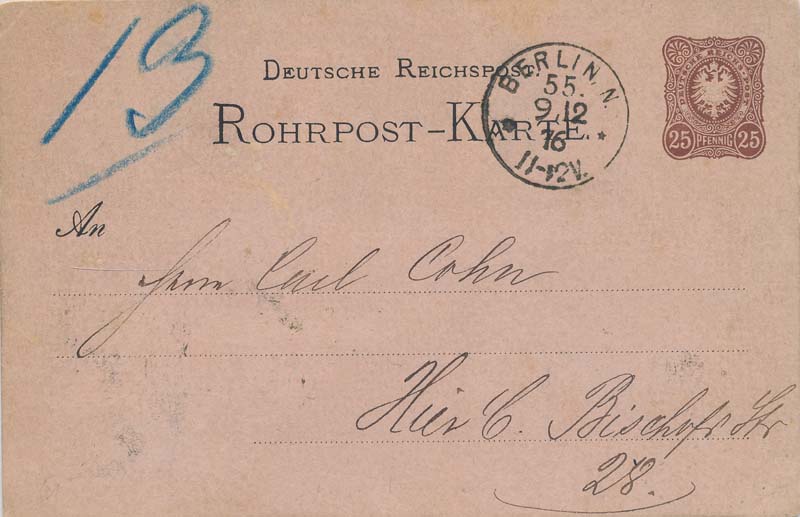 13
DEUTSCHE REICHSPOST.
ROHRPOST-KARTE.
BERLIN, N.
55.
9.12
76
11-12V.
DEUTSCHE REICHS-POST
25 PFENNIG 25
An
Herrn Carl Cohn
Hier C. Bischofs Str
28.